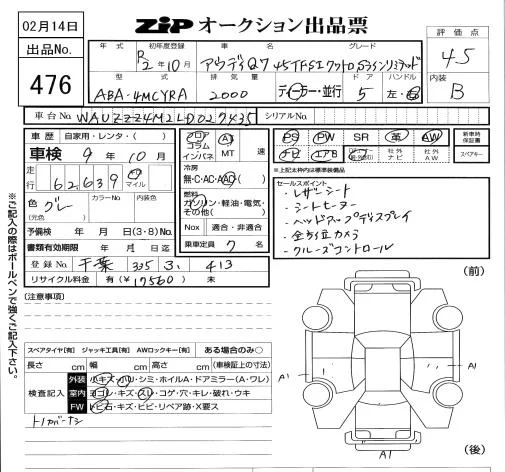 02月14日
ZIP オークション出品票
出品No.
476
評価点
4.5
内装
B
年式 初年度登録 車名 グレード
R2年10月 アウディQ7 45TFSIクワトロ
型式 排気量 ドア ハンドル
ABA-4MCYRA 2000 ディーラー・並行 5 左・右
車台No. WAUZZZ4M2LD027435 シリアルNo.
車歴 自家用・レンタ・( )
車検 9年10月
走行 62,639 マイル
色 グレー カラーNo. 内装色
(元色)
予備検 年 月 日(3・8)No.
書類有効期限 年 月 日迄
登録No. 千葉 335 す 413
リサイクル料金 有(¥17560) 未
フロア AT
コラム
インパネ MT 速
冷房
無・C・AC・AAC
燃料
ガソリン・軽油・電気・
その他( )
Nox 適合・非適合
乗車定員 7名
PS PW SR 革 AW 新車時保証書
ナビ エアB 社外ナビ 社外AW スペアキー
※上記太枠内は標準装備品
セールスポイント
・レザーシート
・シートヒーター
・ヘッドアップディスプレイ
・全方位カメラ
・クルーズコントロール
※ご記入の際はボールペンで強くご記入下さい。
(注意事項)
スペアタイヤ[有] ジャッキ工具[有] AWロックキー[有] ある場合のみ○
長さ cm 幅 cm 高さ cm (車検証上の寸法)
検査記入
外装 小キズ・小凹・シミ・ホイルA・ドアミラー(A・ワレ)
室内 ヨゴレ・キズ・スレ・コゲ・穴・キレ・破れ・ウキ
FW トビ石・キズ・ヒビ・リペア跡・X要ス
(前)
A1
A1
A1
(後)